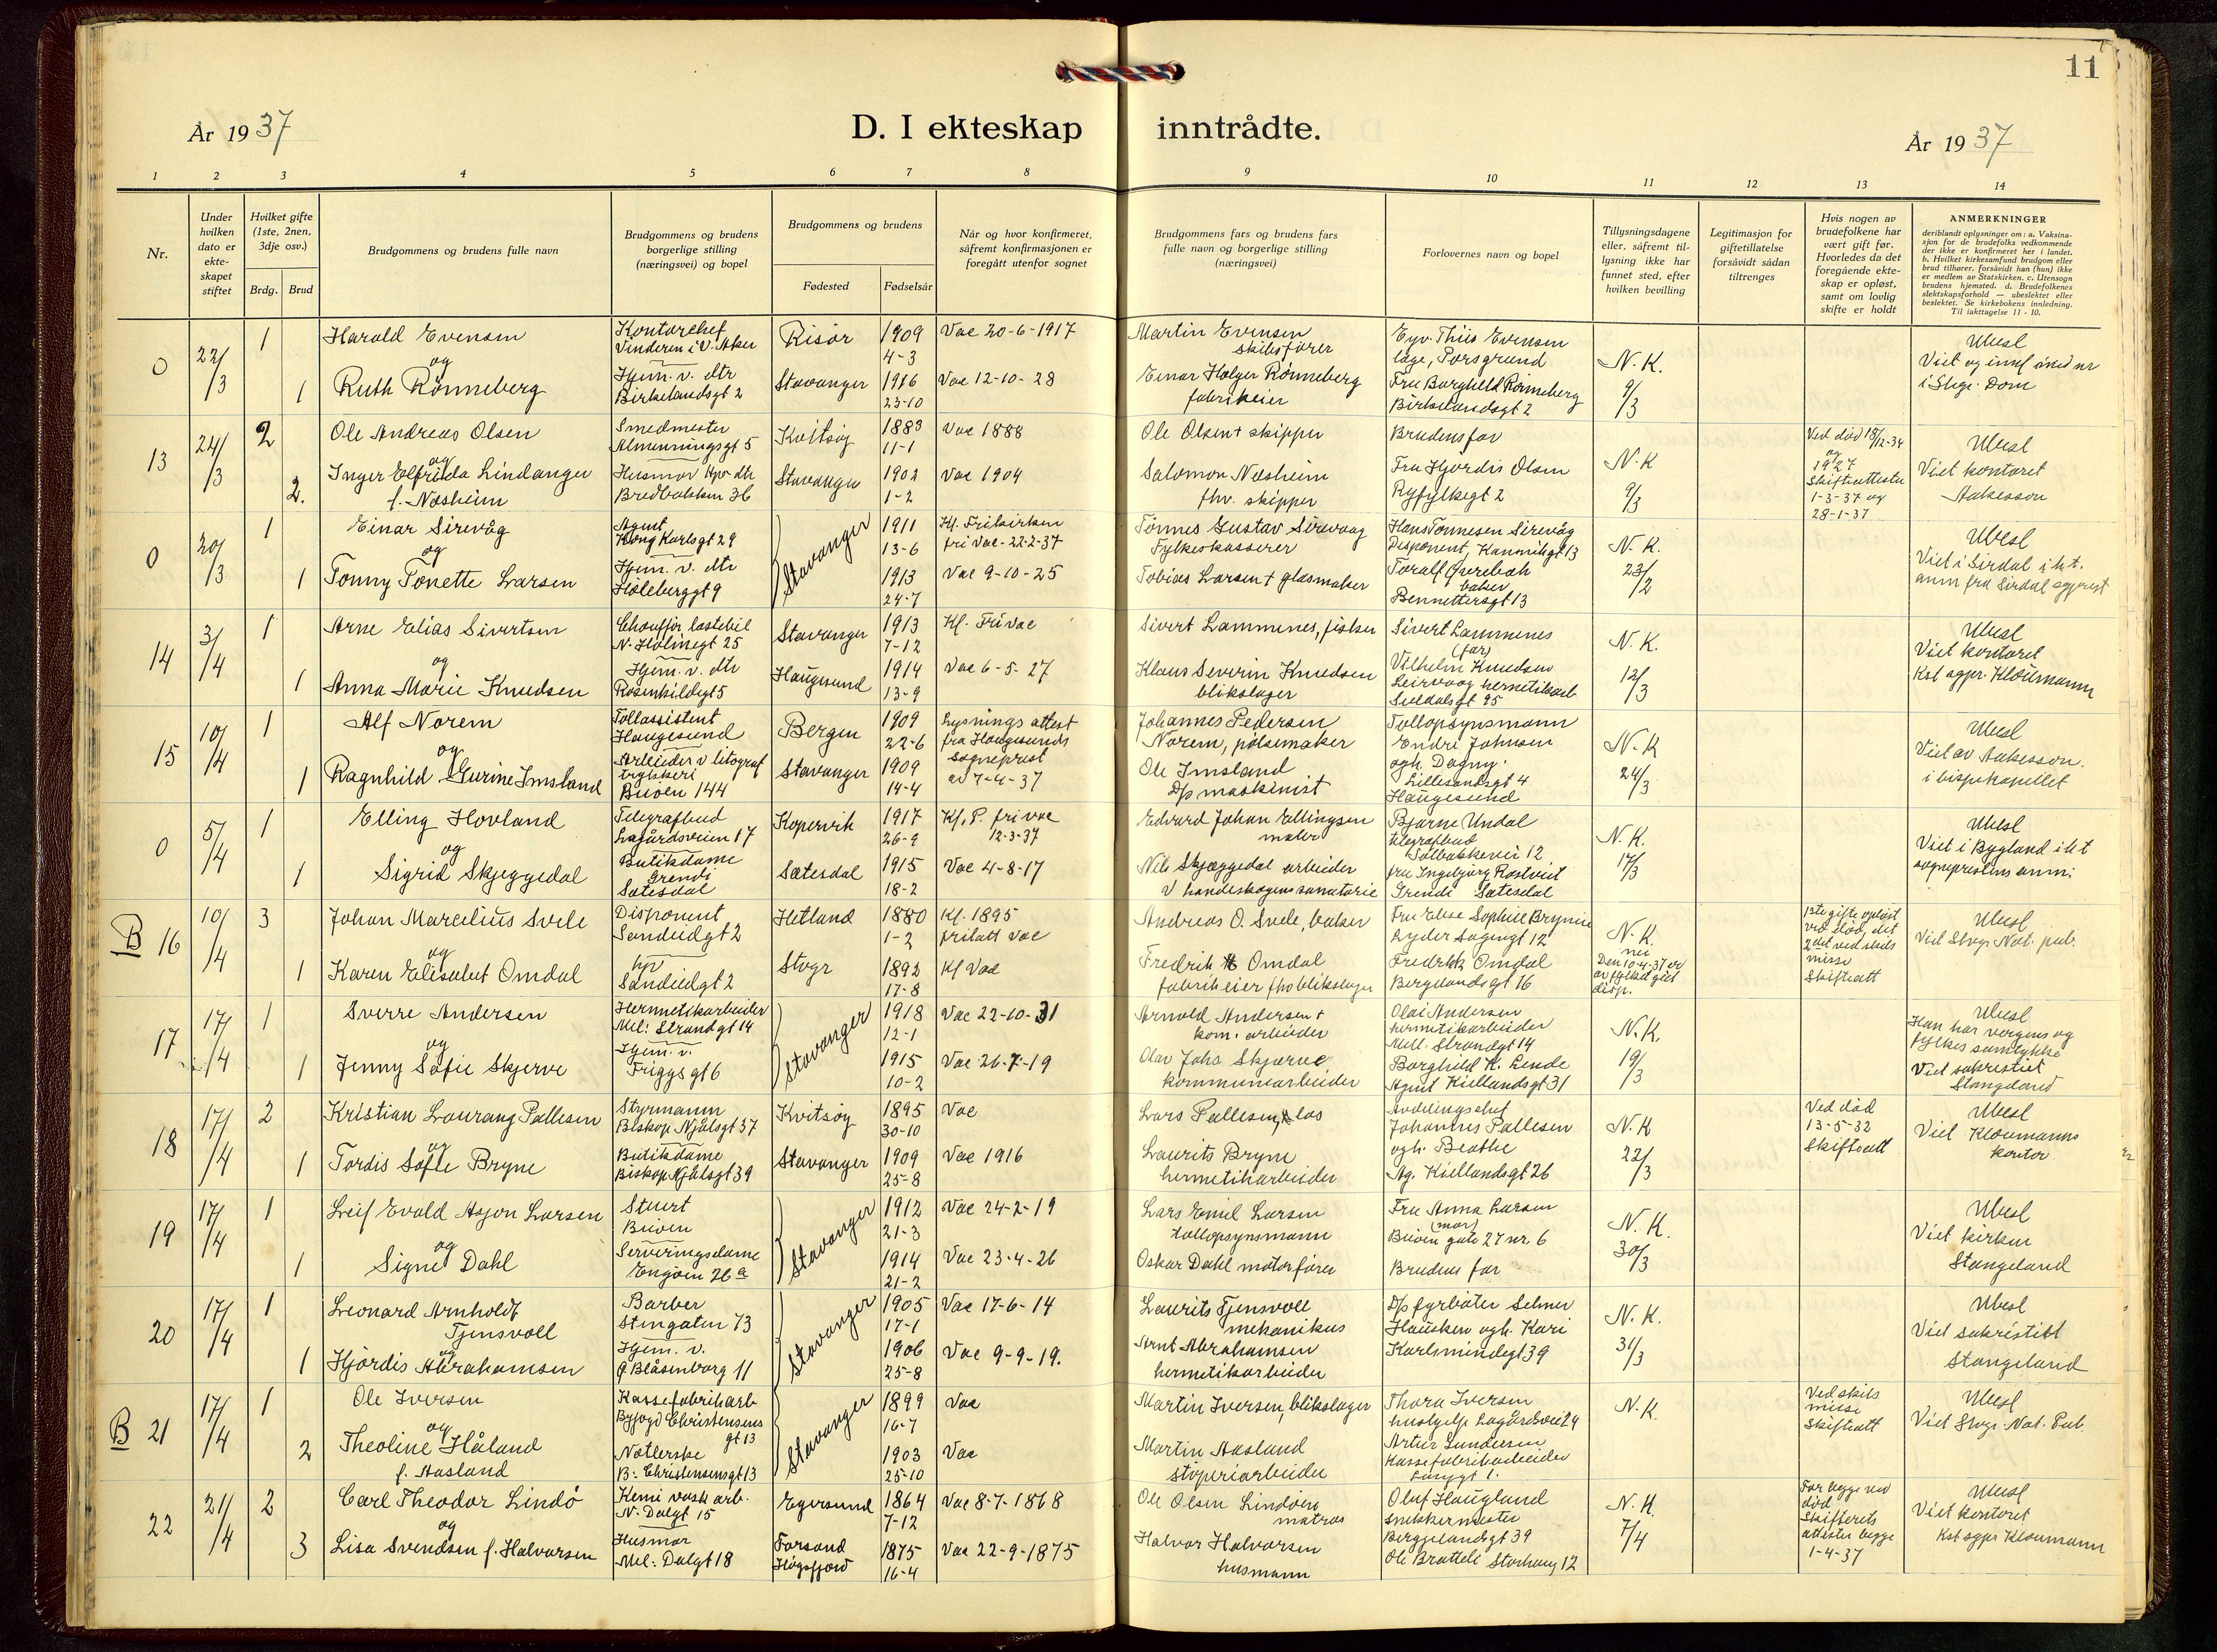 11
År 1937
D. I ekteskap inntrådte.
År 1937
1 2 3 4 5 6 7 8 9 10 11 12 13 14
Nr.
Under hvilken dato er ekte- skapet stiftet
Hvilket gifte (1ste, 2nen, 3dje osv.)
Brdg. Brud
Brudgommens og brudens fulle navn
Brudgommens og brudens borgerlige stilling (næringsvei) og bopel
Brudgommens og brudens
Fødested Fødselsår
Når og hvor konfirmeret, såfremt konfirmasjonen er foregått utenfor sognet
Brudgommens fars og brudens fars fulle navn og borgerlige stilling (næringsvei)
Forlovernes navn og bopel
Tillysningsdagene eller, såfremt til- lysning ikke har funnet sted, efter hvilken bevilling
Legitimasjon for giftetillatelse forsåvidt sådan tiltrenges
Hvis nogen av brudefolkene har vært gift før. Hvorledes da det foregående ekte- skap er opløst, samt om lovlig skifte er holdt
ANMERKNINGER
deriblandt oplysninger om: a. Vaksina- sjon for de brudefolks vedkommende der ikke er konfirmeret her i landet. b. Hvilket kirkesamfund brudgom eller brud tilhører, forsåvidt han (hun) ikke er medlem av Statskirken. c. Utensogn brudens hjemsted. d. Brudefolkenes slektskapsforhold — ubeslektet eller beslektet. Se kirkebokens innledning. Til iakttagelse 11 - 10.
0 22/3 1 Harald Evensen Kontorchef Vinderen i V. Aker Risør 1909 4-3 Vac 20-6-1917 Martin Evensen skibsfører
læge, Porsgrund N. K. 9/3 Ubesl
og
1 Ruth Rönneberg Hjem. v. dtr Birkelandsgt 2 Stavanger 1916 23-10 Vac 12-10-28 Einar Holger Rönneberg fabrikeier Fru Borghild Rönneberg Birkelandsgt 2
i Stgr. Dom
13 24/3 2 Ole Andreas Olsen Smedmester Almenningsgt 5 Kvitsøy 1883 11-1 Vac 1888 Ole Olsen + skipper Brudens far N.K 9/3 Ved død 18/12-34 og 1927 Skifteattester 1-3-37 og 28-1-37 Ubesl Viet kontoret Aakesson
og
2. Inger Elfrida Lindanger f. Næsheim Husmor Stavanger 1902 1-2 Vac 1904 Salomon Næsheim fhv. skipper Fru Hjørdis Olsen Ryfylkegt 2
0 20/3 1 Einar Sirevåg Agent Kong Karlsgt 29 Stavanger 1911 13-6 Kf. Frikirken fri Vac-22-2-37 Tönnes Gustav Sirevaag Fylkeskasserer Hans Tönnesen Sirevåg Disponent, Kannikgt 13 N. K. 23/2 Ubesl Viet i Sirdal i h.t.
og
1 Tonny Tonette Larsen Hjem. v. dtr Höleberggt 9 1913 24-7 Vac 9-10-25 Tobias Larsen + glasmaker baker Bennettersgt 13
anm fra Sirdal sogneprest
14 3/4 1 Arne Elias Sivertsen Chauffør lastebil N. Holmegt 25 Stavanger 1913 7-12 Kf. Fri vac Sivert Lammenes, fisker Sivert Lammenes (far) N. K. 12/3 Ubesl Viet kontoret
og
1 Anna Marie Knudsen Hjem. v. dtr Rosenkildegt 5 Haugesund 1914 13-9 Vac 6-5-27 Klaus Severin Knudsen blikslager Vilhelm Knudsen
15 10/4 1 Alf Norem Tollassistent Haugesund Bergen 1909 22-6 Lysnings attest fra Haugesunds sogneprest av 7-4-37 Johannes Pedersen Norem, pølsemaker Tollopsynsmann Endre Johnsen ogh. Dagny N.K 24/3 Ubesl Viet av Aakesson. i bispekapellet
og
1 Ragnhild Gurine Imsland Arbeider v litograf trykkeri Buøen 144 Stavanger 1909 14-4 Ole Imsland D/p maskinist Lillesandsgt 4 Haugesund
0 5/4 1 Elling Hovland Telegrafbud Lagårdsveien 17 Kopervik 1917 26-9 Kf. P. fri vac 12-3-37 Edvard Johan Ellingsen maler Bjarne Undal telegrafbud Solbakkevei 12 N. K. 17/3 Ubesl Viet i Bygland i h t sogneprestens anm.
og
1 Sigrid Skjeggedal Butikdame Grendi Sætesdal Sætesdal 1915 18-2 Vac 4-8-17 Nils Skjæggedal arbeider v handeskogens sanatorie fru Ingebjørg Rostveit Grendi Sætesdal
B 16 10/4 3 Johan Marcelius Svele Disponent Sandeidgt 2 Hetland 1880 1-2 Kf. 1895 frilatt vac Andreas O. Svele, baker Fru Elise Sophie Brynie Lyder Sagengt 12 N. K. nei Den 10-4-37 er av fylket gitt disp. 1ste gifte opløst ved død, det 2det ved skilsmisse Skifteatt Ubesl Viet Stvgr Not. pub.
og
1 Karen Elisabet Omdal Sandeidgt 2 Stvgr 1892 17-8 Kf Vac Fredrik Omdal fabrikeier fhv blikslager Fredrik Omdal Bergelandsgt 16
17 17/4 1 Sverre Andersen Hermetikarbeider Mel. Strandgt 14 Stavanger 1918 12-1 Vac 22-10-31 Arnold Andersen + kom. arbeider Olai Andersen hermetikarbeider Mell. Strandgt 14 N. K. 19/3 Ubesl Han har vergens og fylkes samtykke Viet sakristiet Stangeland
og
1 Jenny Sofie Skjerve Hjem. v. Friggs gt 6 1915 10-2 Vac 26-7-19 Olav Johs Skjærve kommunearbeider Borghild K. Lende Agent Kiellandsgt 31
18 17/4 2 Kristian Laurang Pallesen Styrmann Biskop Njålsgt 37 Kvitsøy 1895 30-10 Vac Lars Pallesen, los Avdelingschef Johannes Pallesen N. K 22/3 Ved død 13-5-32 Skifteatt Ubesl Viet Kloumanns kontor
og
1 Tordis Sofie Bryne Butikdame Biskop Njålsgt 39 Stavanger 1909 25-8 Vac 1916 Laurits Bryne hermetikarbeider ogh. Beathe Ag. Kiellandsgt 26
19 17/4 1 Leif Evald Asjon Larsen Stuert Buøen Stavanger 1912 21-3 Vac 24-2-19 Lars Emil Larsen tollopsynsmann Fru Anna Larsen (mor) Buøen gate 27 nr. 6 N. K. 30/3 Ubesl Viet kirken Stangeland
og
1 Signe Dahl Serveringsdame Engøen 26 a 1914 21-2 Vac 23-4-26 Oskar Dahl motorfører Brudens far
20 17/4 1 Leonard Arnholdt Tjensvoll Barber Stengaten 73 Stavanger 1905 17-1 Vac 17-6-14 Laurits Tjensvoll mekanikus D/s fyrbøter Selmer Hausken ogh. Kari Karlsmindegt 39 N. K. 31/3 Ubesl Viet sakristiet Stangeland
og
1 Hjördis Abrahamsen Hjem. v. G. Blåsenborg 11 1906 25-8 Vac 9-9-19. Arnt Abrahamsen hermetikarbeider
B 21 17/4 1 Ole Iversen Kassefabrikarb Byfogd Christensens gt 13 Stavanger 1899 16-7 Vac Martin Iversen, blikslager Thora Iversen N. K. Ved skilsmisse Skifteatt Ubesl Viet Stvgr. Not. Pub.
og
2 Theoline Håland f. Aasland B. Christensensgt 13 1903 25-10 Vac Martin Aasland støperiarbeider Artur Gundersen Kassefabrikarbeider
22 21/4 2 Carl Theodor Lindö Kemi vask arb. N. Dalgt 15 Egersund 1864 7-12 Vac 8-7-1868 Ole Olsen Lindøen matros Oluf Haugland Snekkermester Bergelandsgt 39 N. K. 7/4 For begge ved død Skifterets attester begge 1-4-37 Ubesl Viet kontoret
og
3 Lisa Svendsen f. Halvorsen Husmor Mel. Dalgt 18 Forsand Høgsfjord 1875 16-4 Vac 22-9-1875 Halvor Halvorsen husmann Ole Bratteli Storhaug 12